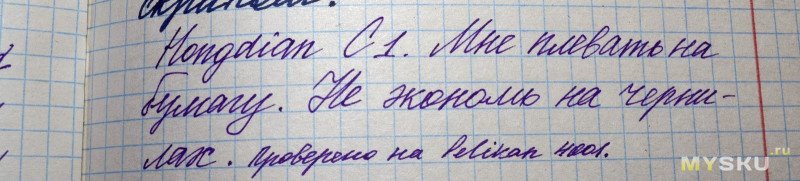 скрипом.
Hongdian C1. Мне плевать на
бумагу. Не экономь на черни-
лах. Проверено на Pelikan 4001.
MYSKU.ru